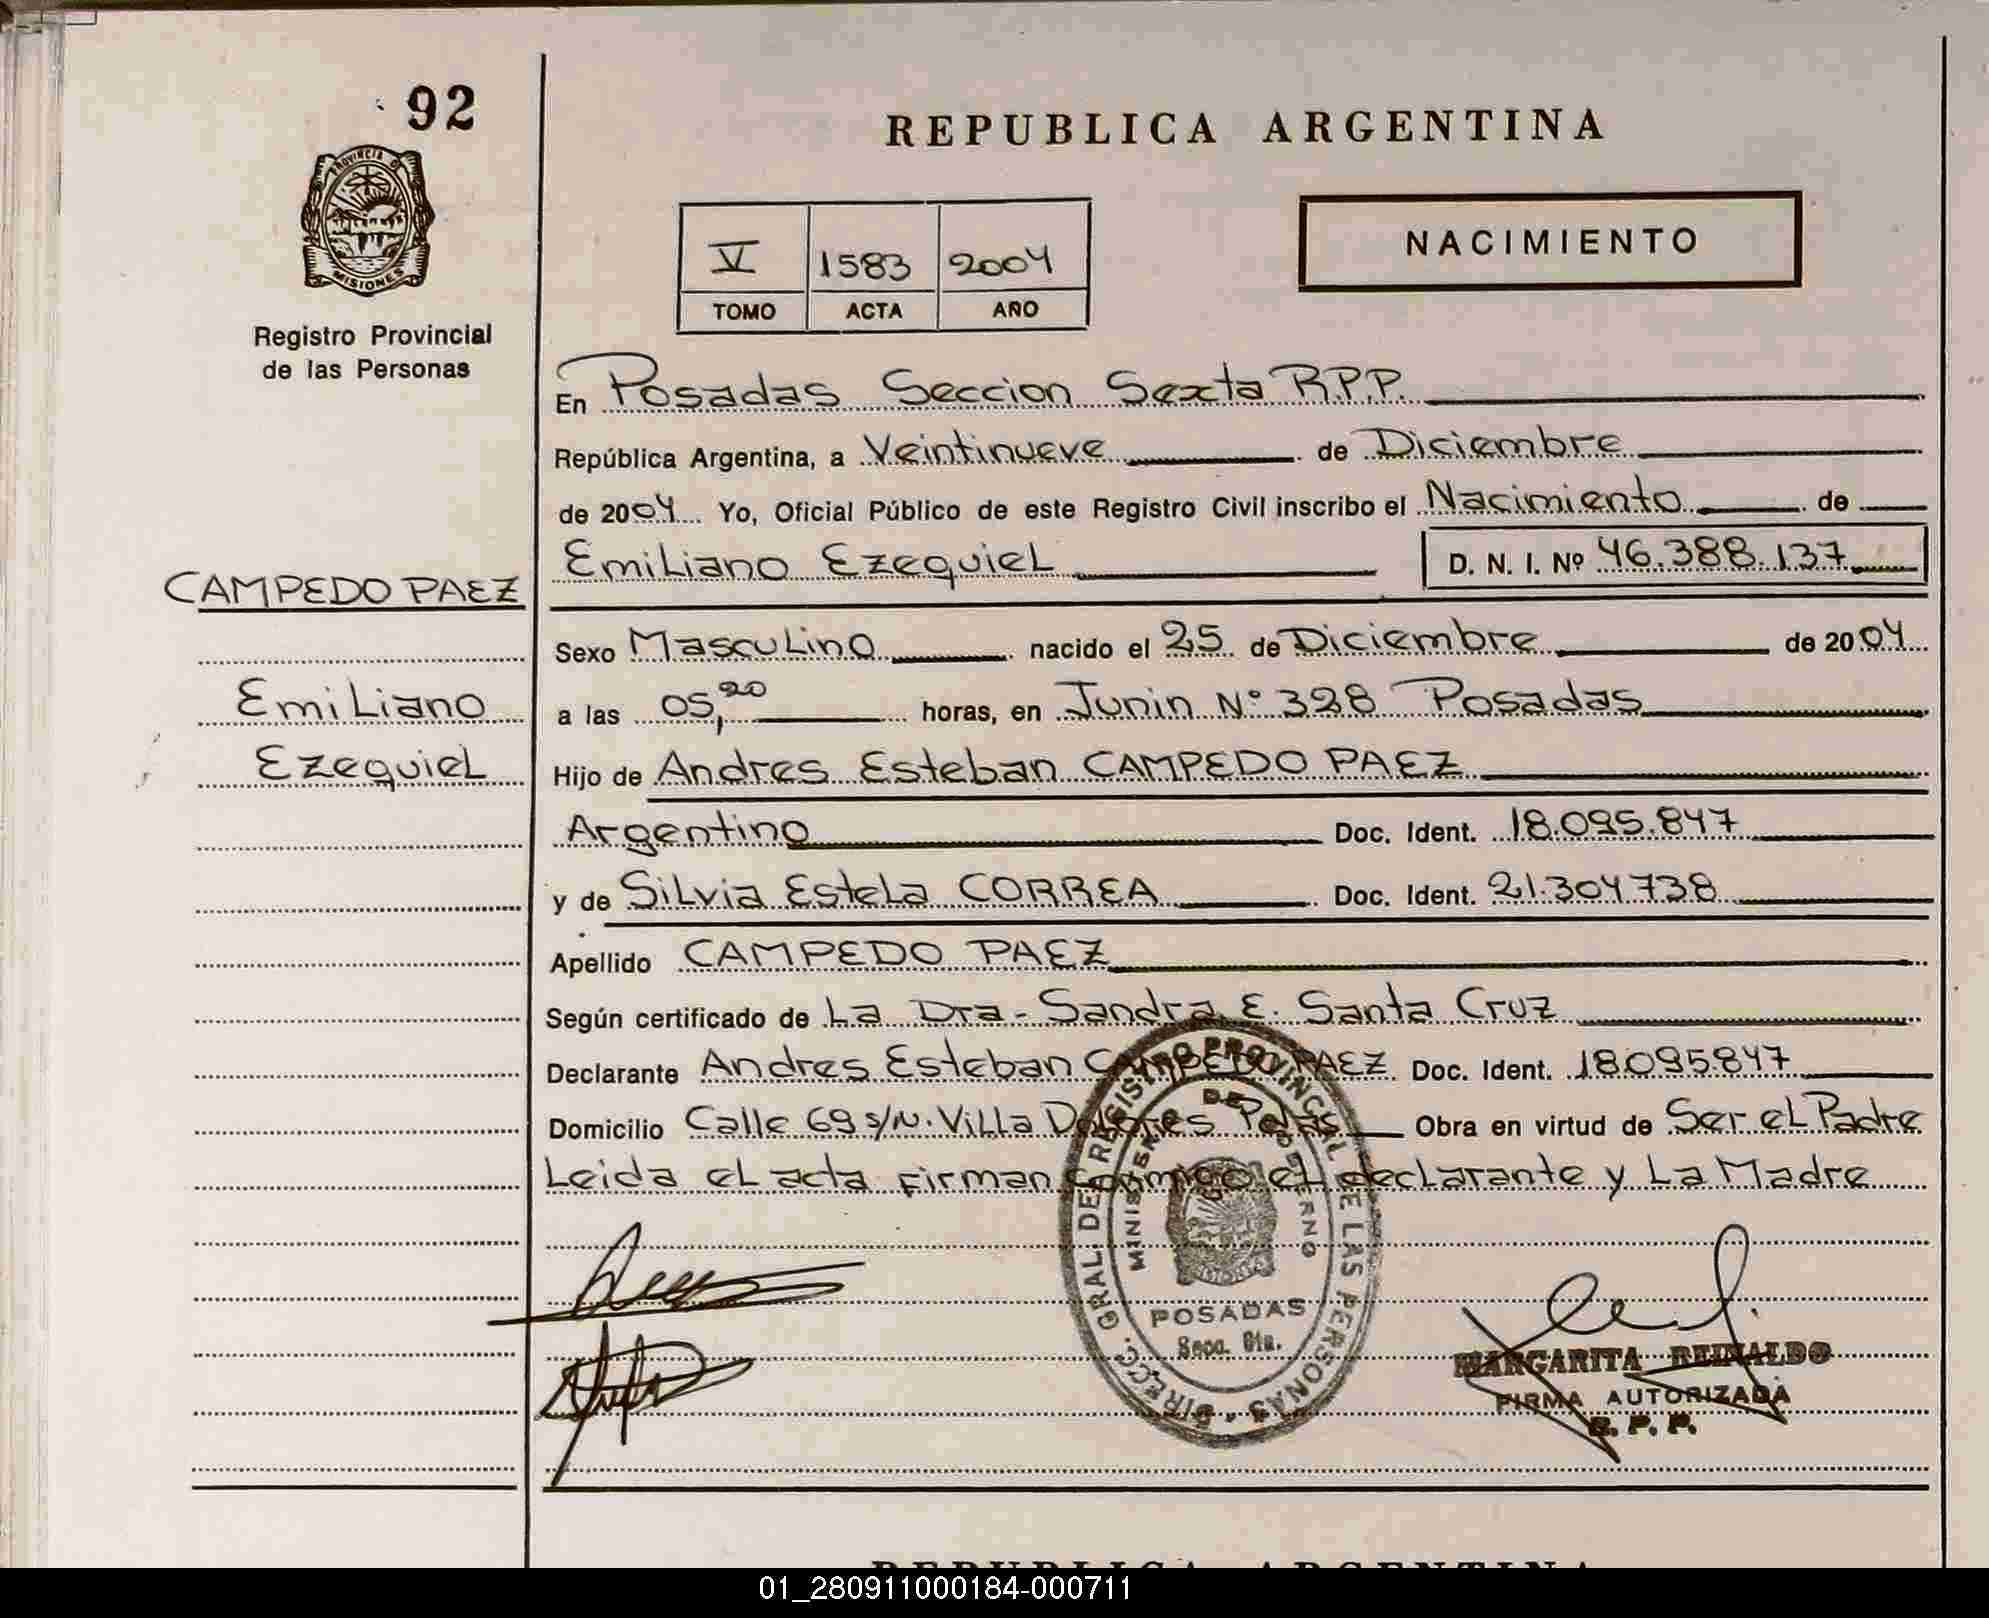 92
PROVINCIA DE
MISIONES
Registro Provincial
de las Personas
REPUBLICA ARGENTINA
V 1583 2004
TOMO ACTA AÑO
NACIMIENTO
En Posadas Seccion Sexta R.P.P.
República Argentina, a Veintinueve de Diciembre
de 2004 Yo, Oficial Público de este Registro Civil inscribo el Nacimiento de
Emiliano Ezequiel D. N. I. Nº 46.388.137
CAMPEDO PAEZ
Emiliano
Ezequiel
Sexo Masculino nacido el 25 de Diciembre de 2004
a las 05,20 horas, en Junin Nº 328 Posadas
Hijo de Andres Esteban CAMPEDO PAEZ
Argentino Doc. Ident. 18.095.847
y de Silvia Estela CORREA Doc. Ident. 21.304738
Apellido CAMPEDO PAEZ
Según certificado de La Dra - Sandra E. Santa Cruz
Declarante Andres Esteban CAMPEDO PAEZ Doc. Ident. 18095847
Domicilio Calle 69 s/n. Villa Dolores Pdas Obra en virtud de Ser el Padre
Leida el acta firman conmigo el declarante y La Madre
DIRECC. GRAL. DEL REGISTRO PROVINCIAL DE LAS PERSONAS
MINISTERIO DE GOBIERNO
POSADAS
Secc. 6ta.
MARGARITA REINALDO
FIRMA AUTORIZADA
R. P. P.
REPUBLICA ARGENTINA
01_280911000184-000711